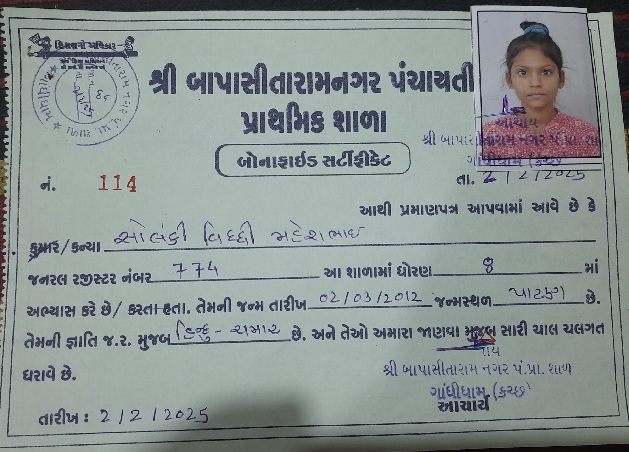 શ્રી બાપાસીતારામનગર પંચાયતી
પ્રાથમિક શાળા
બોનાફાઈડ સર્ટીફીકેટ
નં. 114
તા. 2/2/2025
આથી પ્રમાણપત્ર આપવામાં આવે છે કે
કુમાર/કન્યા સોલંકી વિધ્દી મહેશભાઈ
જનરલ રજીસ્ટર નંબર 774 આ શાળામાં ધોરણ 8 માં
અભ્યાસ કરે છે/ કરતા હતા. તેમની જન્મ તારીખ 02/03/2012 જન્મસ્થળ પાટણ છે.
તેમની જ્ઞાતિ જ.ર. મુજબ હિન્દુ - ચમાર છે. અને તેઓ અમારા જાણવા મુજબ સારી ચાલ ચલગત
ધરાવે છે.
શ્રી બાપાસીતારામ નગર પં.પ્રા. શાળ
ગાંધીધામ (કચ્છ)
આચાર્ય
તારીખ : 2/2/2025